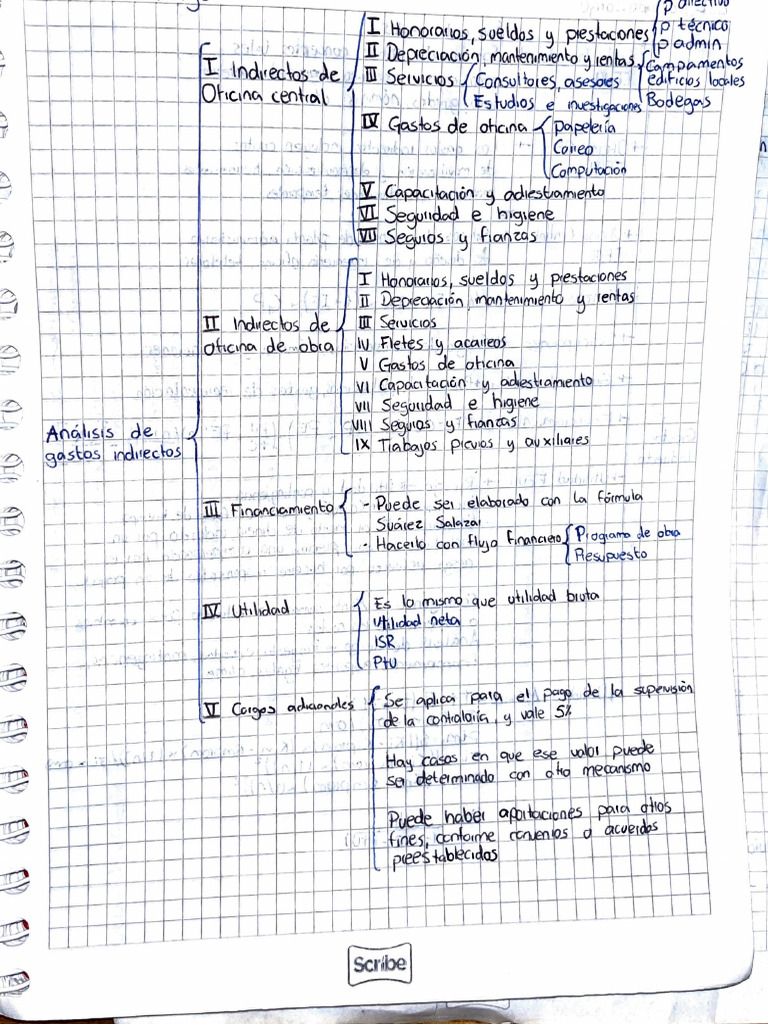 P directivo
I Honorarios, sueldos y prestaciones P técnico
P admin
II Depreciación, mantenimiento y rentas Campamentos
edificios locales
Bodegas
I Indirectos de
Oficina central
III Servicios Consultores, asesores
Estudios e investigaciones
IV Gastos de oficina Papelería
Correo
Computación
V Capacitación y adiestramiento
VI Seguridad e higiene
VII Seguros y fianzas
II Indirectos de
oficina de obra
I Honorarios, sueldos y prestaciones
II Depreciación, mantenimiento y rentas
III Servicios
IV Fletes y acarreos
V Gastos de oficina
VI Capacitación y adiestramiento
VII Seguridad e higiene
VIII Seguros y fianzas
IX Trabajos previos y auxiliares
Análisis de
gastos indirectos
III Financiamiento
- Puede ser elaborado con la fórmula
Suárez Salazar
- Hacerlo con flujo Financiero Programa de obra
Presupuesto
IV Utilidad
Es lo mismo que utilidad bruta
Utilidad neta
ISR
PtU
V Cargos adicionales
Se aplica para el pago de la supervisión
de la contraloría, y vale 5%
Hay casos en que ese valor puede
ser determinado con otro mecanismo
Puede haber aportaciones para otros
fines, conforme convenios o acuerdos
preestablecidos
Scribe